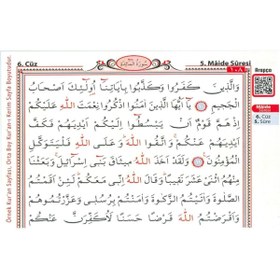 6. Cüz
5. Mâide Sûresi
وَالَّذِينَ كَفَرُوا وَكَذَّبُوا بِآيَاتِنَا أُولَٰئِكَ أَصْحَابُ
الْجَحِيمِ يَا أَيُّهَا الَّذِينَ آمَنُوا اذْكُرُوا نِعْمَتَ اللَّهِ عَلَيْكُمْ
إِذْ هَمَّ قَوْمٌ أَنْ يَبْسُطُوا إِلَيْكُمْ أَيْدِيَهُمْ فَكَفَّ
أَيْدِيَهُمْ عَنْكُمْ وَاتَّقُوا اللَّهَ وَعَلَى اللَّهِ فَلْيَتَوَكَّلِ
الْمُؤْمِنُونَ وَلَقَدْ أَخَذَ اللَّهُ مِيثَاقَ بَنِي إِسْرَائِيلَ وَبَعَثْنَا
مِنْهُمُ اثْنَيْ عَشَرَ نَقِيبًا وَقَالَ اللَّهُ إِنِّي مَعَكُمْ لَئِنْ أَقَمْتُمُ
الصَّلَاةَ وَآتَيْتُمُ الزَّكَاةَ وَآمَنْتُمْ بِرُسُلِي وَعَزَّرْتُمُوهُمْ
وَأَقْرَضْتُمُ اللَّهَ قَرْضًا حَسَنًا لَأُكَفِّرَنَّ عَنْكُمْ
Arapça
Mâide
6. Cüz
5. Sûre
Örnek Kur'an Sayfası, Orta Boy Kur'an-ı Kerim Sayfa Boyutudur.